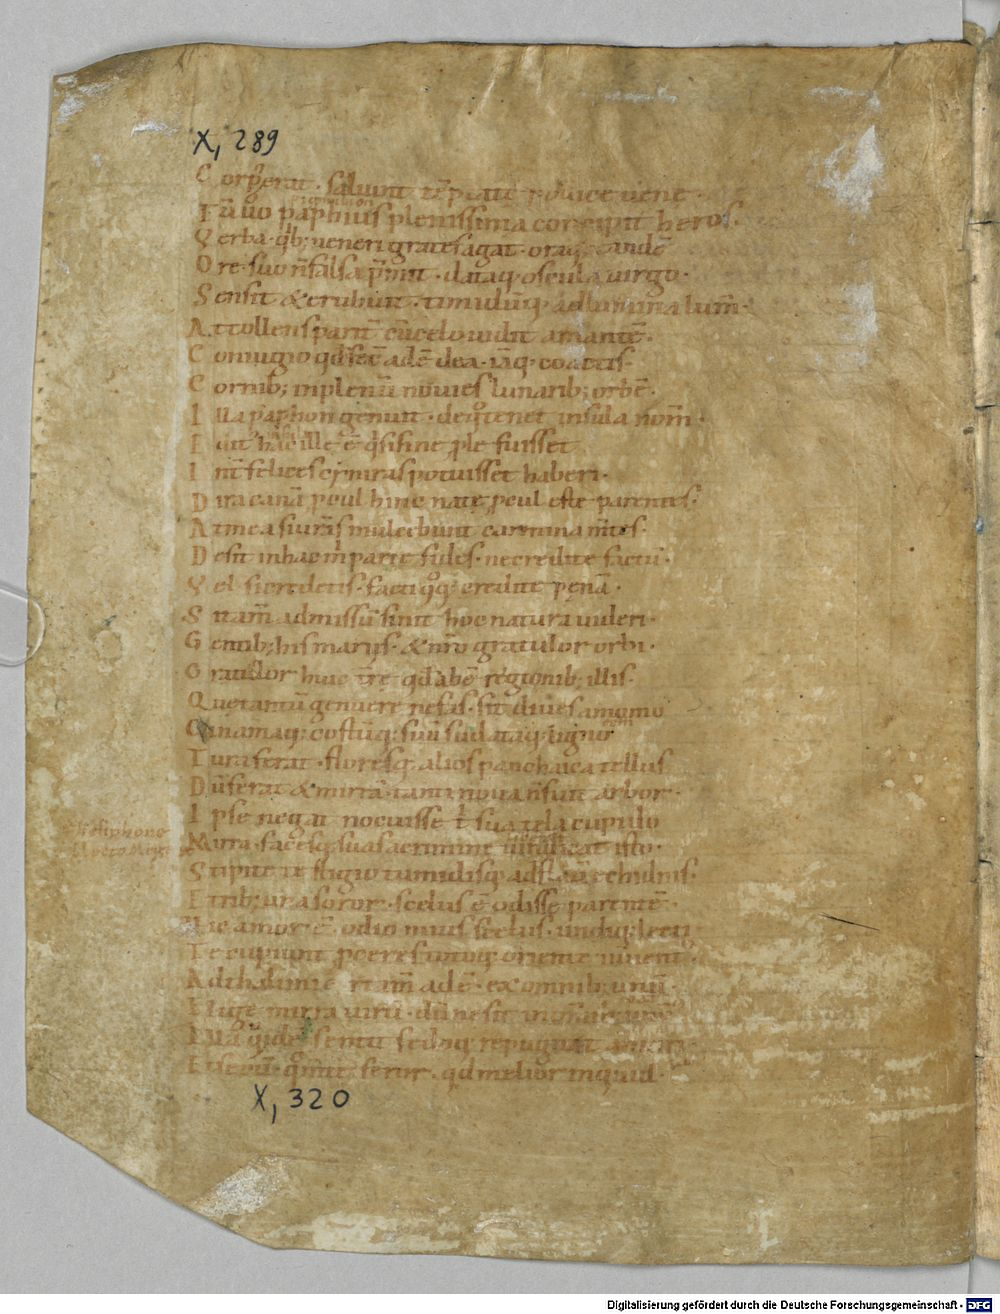 X, 289
Corp̄ erat. saliunt tēptatę pollice uenę.
Tū uo paphius plenissima concipit heros.
Verba. qb; ueneri grates agat. oraq; tandē
Ore suo n̄ falsa p̄mit. dataq; oscula uirgo.
Sensit & erubuit. timidūq; ad lumina lum̄.
Attollens parit̄ cū celo uidit amantē.
Coniugio qd̄ fec̄ adē dea. iāq; coactis.
Cornib; inplenū nouies lunarib; orbē.
Illa paphon genuit. de q̊ tenet insula nom̄.
Edit hac ille ē q̄ si sine ple fuisset
Int̄ felices cinyras potuisset haberi.
Dira canā pcul hinc natę pcul este parentes.
Aut mea si uras mulcebunt carmina m̄tes.
Desit in hac m̄ parte fides. nec credite factū.
Vel si creditis. facti q̊q; credite pęnā.
Si tam̄ admissū sinit hoc natura uideri.
Gentib; ismarijs. & nr̄o gratulor orbi.
Gratulor huic tr̄e qd̄ abē regionib; illis.
Quę tantū genuere nefas. sit diues amomo
Cinnamaq; costūq; suū sudataq; ligno
Tura ferat. floresq; alios panchaica tellus
Dū ferat & mirrā. tanti noua n̄ fuit arbor.
Ipse negat nocuisse t̄ sua tela cupido
Mirra. facesq; suas a crimine uindicat isto.
Stipite te stigio tumidisq; adflauit echidnis.
E trib; una soror. scelus ē odisse parentē.
Hic amor ē. odio maius scelus. undiq; lecti
Te cupiunt pceres. totoq; oriente iuuent
Ad thalami c̄tam̄ adē. ex omnib; unū.
Elige mirra uirū. dū ne sit in
Illa q̄idē sentit fędoq; repugnat amori
Et secū. q̊ m̄te feror. qd̄ molior inquid.
X, 320
Digitalisierung gefördert durch die Deutsche Forschungsgemeinschaft - DFG